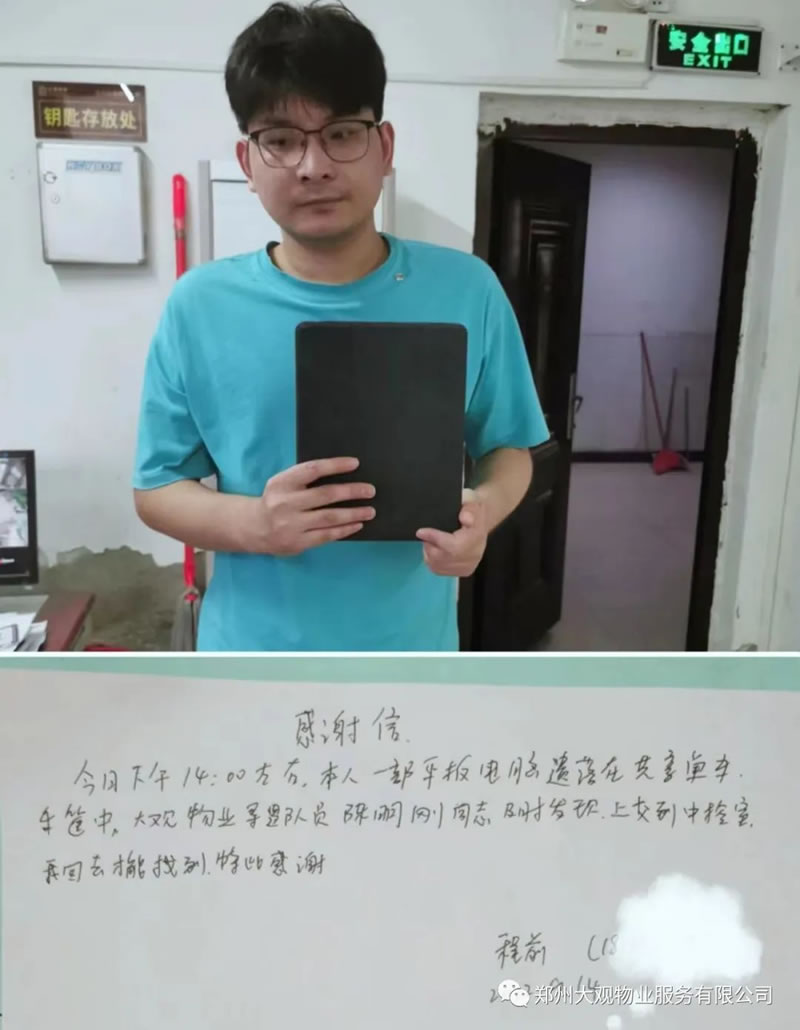 安全出口
EXIT
钥匙存放处
感谢信
今日下午14:00左右,本人一部平板电脑遗落在共享单车
车筐中,大观物业寻逻队员 陈明刚同志及时发现.上交到中控室
再回去才能找到.特此感谢
程前 (18
郑州大观物业服务有限公司